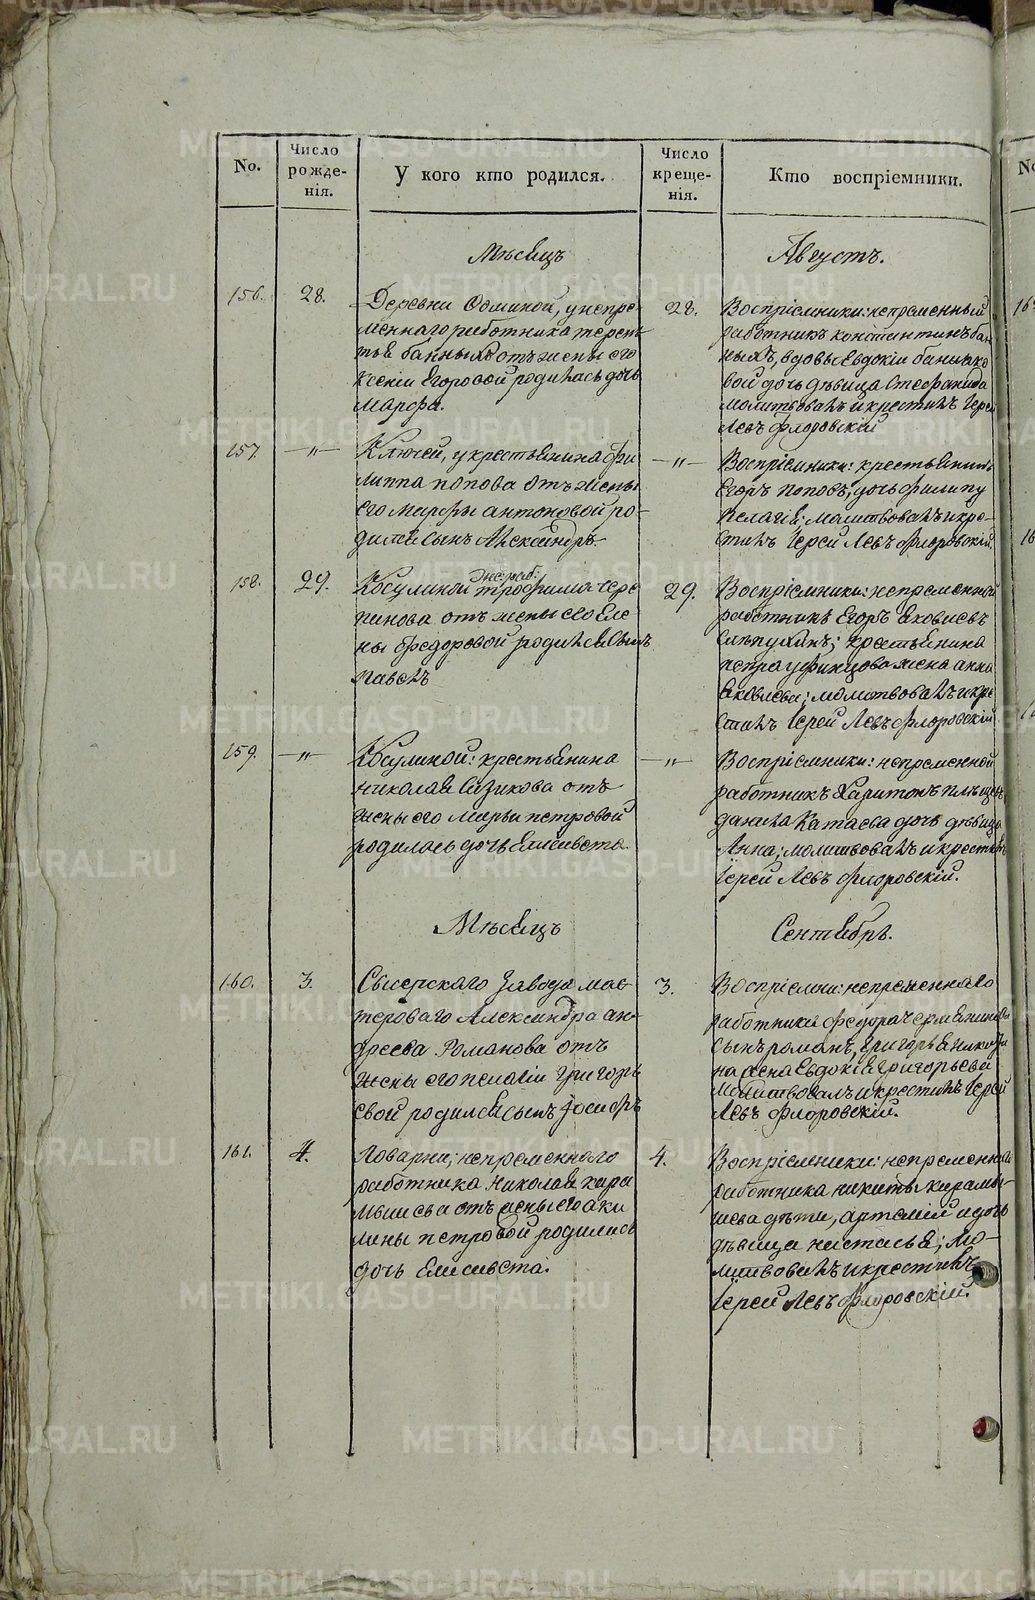 No.
Число рожде-нія.
У кого кто родился.
Число креще-нія.
Кто воспріемники.
Мѣсяцъ
Августъ.
156.
28.
Деревни Фоминой, у непре-
меннаго работника терень
тья банныхъ отъ жены его
Ксеніи Егоровой родилась дочь
Марфа.
28.
Воспріемники: непременный
работникъ константинъ бан
ныхъ, вдовы Евдокіи
вой дочь дѣвица Стефанида
молитвовалъ и крестилъ Іерей
Левъ Флоровскій
157.
—„—
Ключей, у крестьянина фи
липпа попова отъ жены
его марфы антоновой ро-
дился сынъ Александръ.
—„—
Воспріемники: крестьянинъ
Егоръ поповъ, дочь филипу
пелагія; молитвовалъ и кре-
стилъ Іерей Левъ Флоровскій.
158.
29.
непраб:
Косулиной трофима чере
панова отъ жены его Еле
ны федоровой родился сынъ
павелъ
29.
Воспріемники: непременный
работникъ Егоръ яковлевъ
крестьянина
петра уфинцова жена анна
яковлева; молитвовалъ и кре
стилъ Іерей Левъ Флоровскій
159.
—„—
Косулиной: крестьянина
николая Сизикова отъ
жены его марьи петровой
родилась дочь Елисавета.
—„—
Воспріемники: непременной
работникъ Харитонъ
данила Катаева дочь дѣвица
Анна; молитвовалъ и крестилъ
Іерей Левъ Флоровскій.
Мѣсяцъ
Сентябрь.
160.
3.
Сысерскаго Завода мас-
тероваго Александра ан-
дреева Романова отъ
жены его пелагіи Григорь
евой родился сынъ Іосифъ
3.
Воспріемни: непременнаго
работника федора черемянинова
сынъ романъ, Григорья
на жена Евдокія Григорьева
молитвовалъ и крестилъ Іерей
Левъ Флоровскій.
161.
4.
Поварни; непременнаго
работника николая кара
мышева отъ жены его аку
лины петровой родилась
дочь Елисавета.
4.
Воспріемники: непременнаго
работника никиты карамы
шева дѣти, артемій и дочь
дѣвица настасья; мо-
литвовалъ и крестилъ
Іерей Левъ Флоровскій.
METRIKI.GASO-URAL.RU